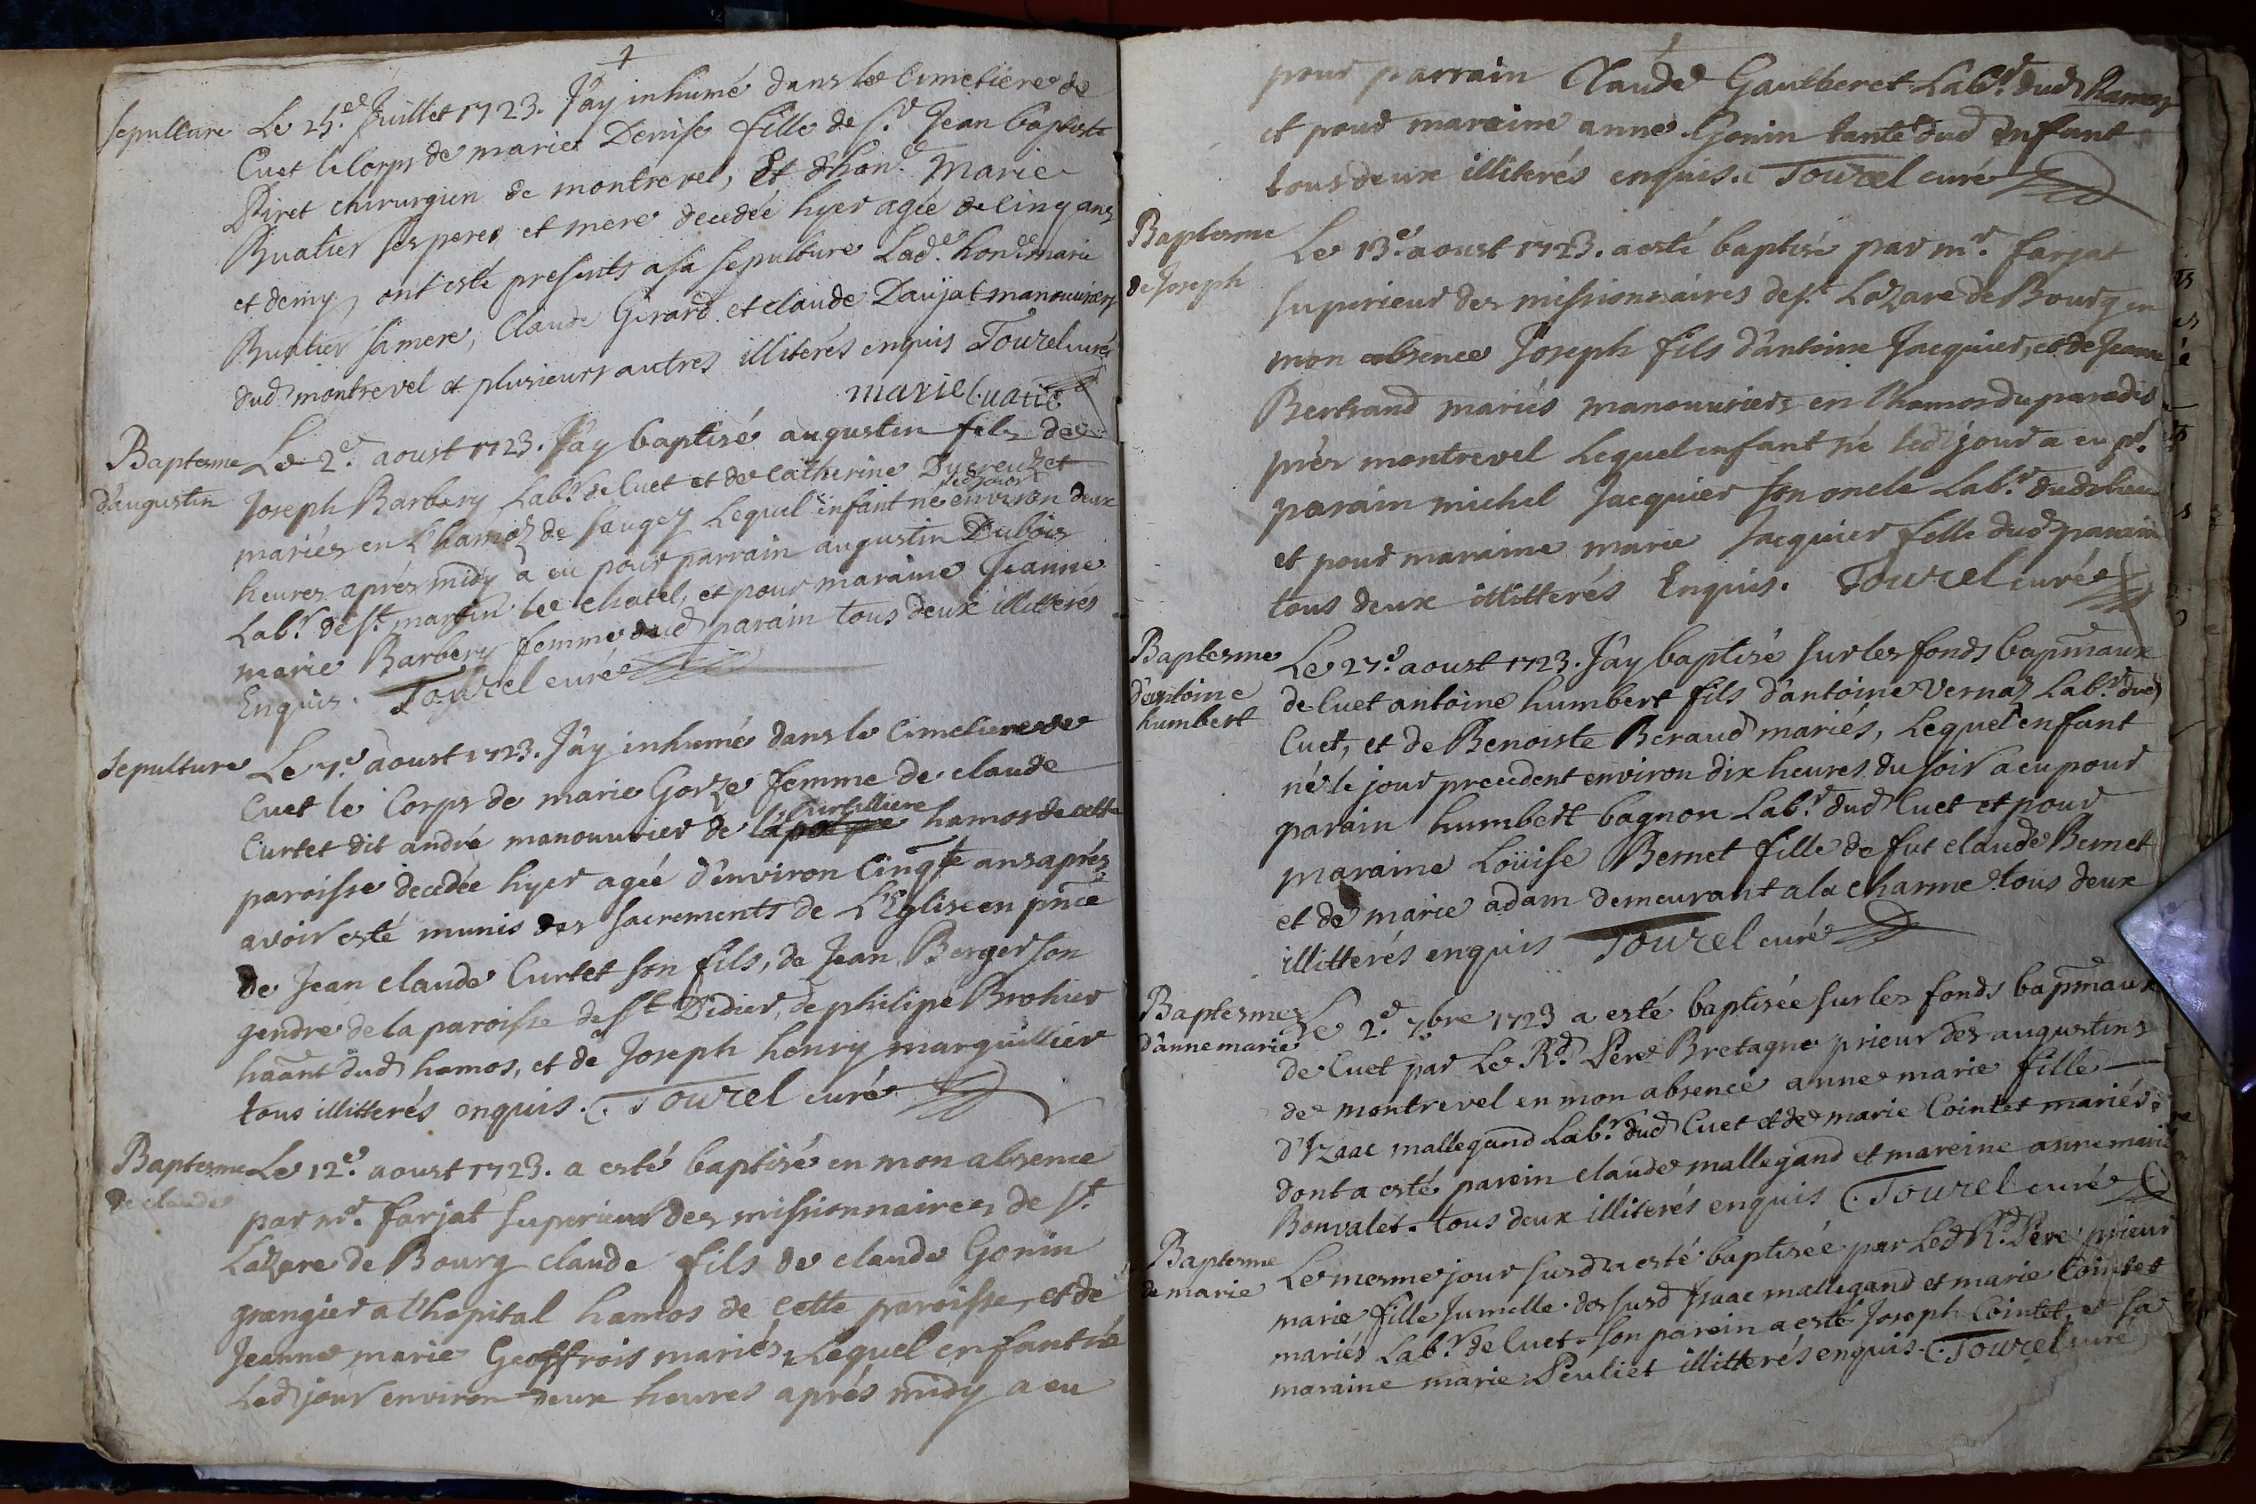 Sepulture Le 25.e Juillet 1723. J'ay inhumé dans le Cimetiere de
Cuet le Corps de marie Denise fille de S.r Jean baptiste
Piret chirurgien de montrevel, et d'hon.e Marie
Buatier ses peres et mere decedée hyer agée de Cinq ans
et demy, ont esté presents a sa sepulture Lad.e hon.e marie
Buatier sa mere, Claude Girard et claude Daujat manouvriers
dud montrevel et plusieurs autres illiterés enquis Tourel curé
marie buatie
Baptesme Le 2.e aoust 1723. J'ay baptisé augustin fils de
d'augustin Joseph Barbery Lab.r de Cuet et de Catherine Ducreuzet
led jour
mariés en L'hamoz de saugey Lequel enfant né environ deux
heures aprés midy a eu pour parrain augustin Dubois
Lab.r de s.t martin le chatel, et pour maraine Jeanne
marie Barbery femme dud parain tous deux illitterés
Enquis. Tourel curé
Sepulture Le 7.e aoust 1723. J'ay inhumé dans le Cimetiere de
Cuet le Corps de marie Gorze femme de claude
Curtet dit andré manouvrier de hamos de cette
paroisse decedée hyer agée d'environ Cinq.te ans aprés
avoir esté munis des sacrements de L'Eglise en pnce
de Jean claude Curtet son fils, de Jean Berger son
gendre de la paroisse de s.t Didier, de philipe Brohier
haãnt dud hamos, et de Joseph henry marguillier
tous illitterés enquis. Tourel curé
Baptesme Le 12.e aoust 1723. a esté baptisé en mon absence
de claude par m.r farjat superieur des missionnaires de s.t
Lazare de Bourg claude fils de claude Gonin
grangier a l'hopital hamos de cette paroisse, et de
Jeanne marie Geoffrois mariés, Lequel enfant né
Led jour environ deux heures aprés midy a eu
pour parrain Claude Gautheret Lab.r dud
et pour maraine anne Gonin tante dud enfant
tous deux illiterés enquis. Tourel curé
Baptesme Le 13.e aoust 1723. a esté baptisé par m.r farjat
de Joseph superieur des missionnaires de s.t Lazare de Bourg en
mon absence Joseph fils d'antoine Jacquier, et de Jeanne
Bertrand mariés manouvriers en l'hamos du paradis
près montrevel Lequel enfant né led jour a eu p.r
parain michel Jacquier son oncle Lab.r dud lieu
et pour maraine marie Jacquier fille dud parain
tous deux illitterés Enquis. Tourel curé
Baptesme Le 27.e aoust 1723. J'ay baptisé sur les fonds bapmaux
d'antoine de Cuet antoine humbert fils d'antoine Vernaz Lab.r dud
humbert Cuet, et de Benoiste Beraud mariés, Lequel enfant
né le jour precedent environ dix heures du soir a eu pour
parain humbert bagnon Lab.r dud Cuet et pour
maraine Loüise Bernet fille de fut claude Bernet
et de marie adam demeurant a la charme tous deux
illitterés enquis Tourel curé
Baptesme Le 2.e 7bre 1723 a esté baptisée sur les fonds bapmaux
d'anne marie de Cuet par Le R.d Pere Bretagne prieur des augustins
de montrevel en mon absence anne marie fille
d'Izaac mallegand Lab.r dud Cuet et de marie Cointet mariés.
dont a esté parein claude mallegand et mareine anne marie
Bonvalet. tous deux illiterés enquis Tourel curé
Baptesme Le mesme jour susd a esté baptisée par Led R.d Pere prieur
de marie marie fille Jumelle des susd Isaac mallegand et marie Cointet
mariés Lab.r de Cuet. son parein a esté Joseph Cointet, et sa
maraine marie Peuliet illitterés enquis. Tourel curé